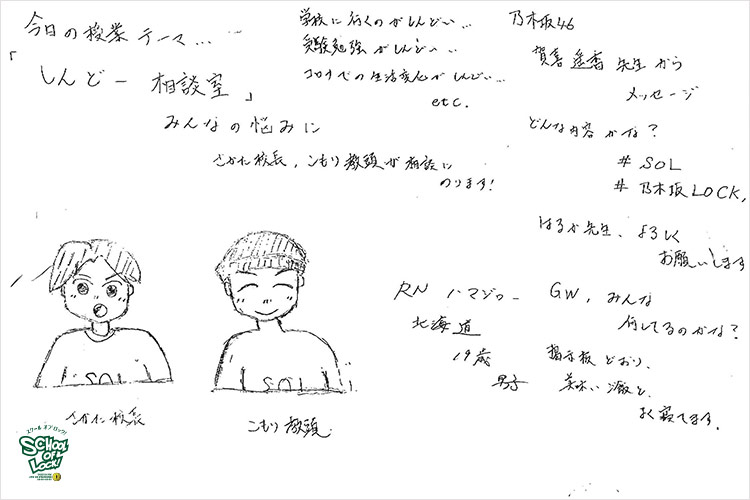 今日の授業テーマ…
「しんどー相談室」
みんなの悩みに
さかた校長、こもり教頭が相談に
のります!
学校に行くのがしんどい…
受験勉強がしんどい…
コロナでの生活変化がしんどい…
etc.
乃木坂46
賀喜遥香先生から
メッセージ
どんな内容かな?
# SOL
# 乃木坂LOCK,
はるか先生、よろしく
お願いします
RN ハマジロー
北海道
19歳
男子
GW, みんな
何してるのかな?
掲示板どおり、
美味い飯と、
よく寝てます.
SOL
さかた校長
SOL
こもり教頭
スクール オブ ロック!
SCHOOL
OF
LOCK!